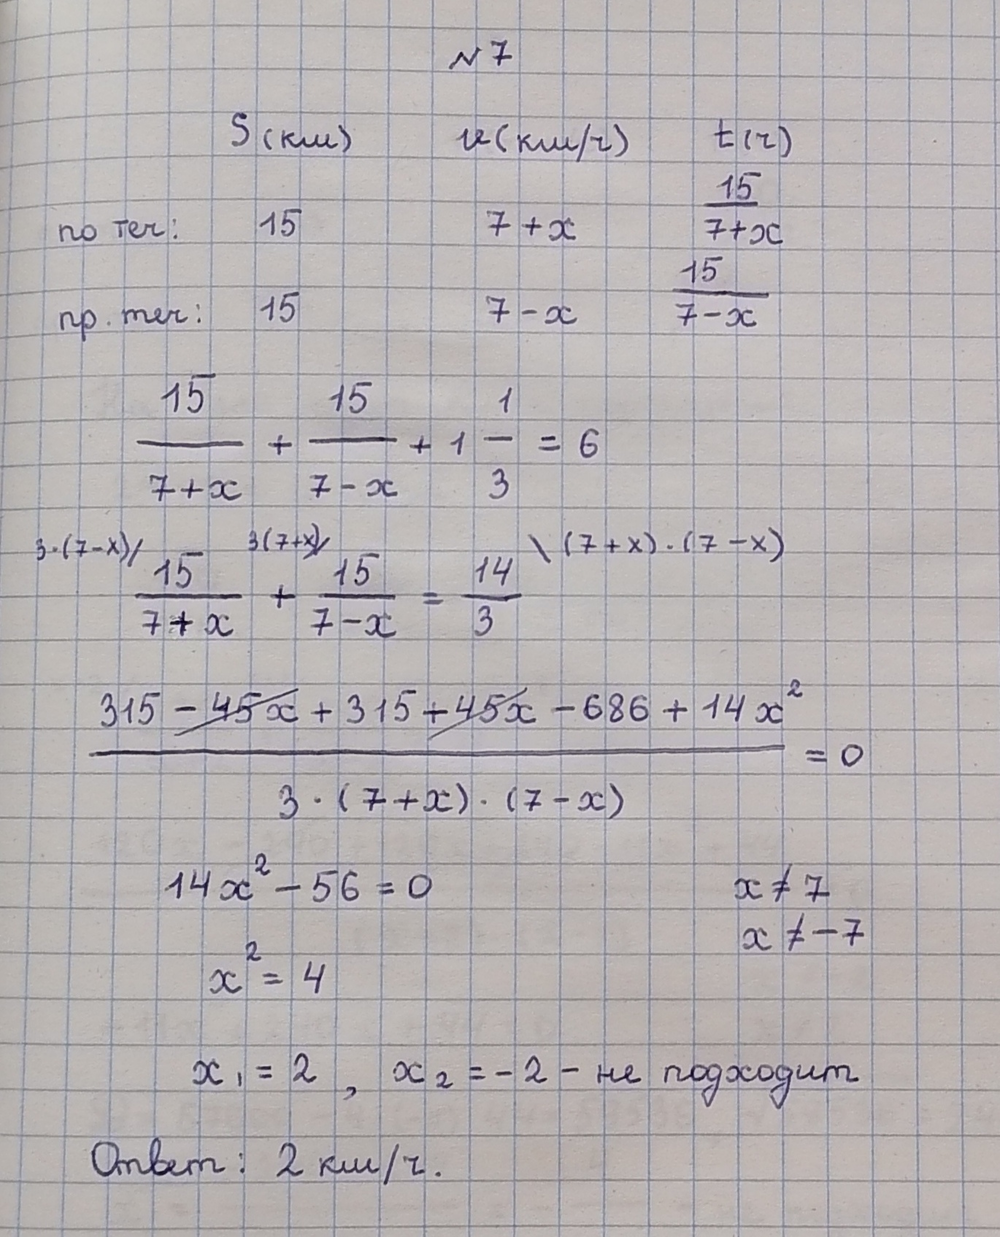 № 7
S (км) v (км/ч) t (ч)
по теч: 15 7 + x 15/(7+x)
пр. теч: 15 7 - x 15/(7-x)
15/(7+x) + 15/(7-x) + 1 1/3 = 6
3·(7-x)/ 15/(7+x) + 3(7+x)/ 15/(7-x) = 14/3 \(7+x)·(7-x)
(315 - 45x + 315 + 45x - 686 + 14x²)/(3·(7+x)·(7-x)) = 0
14x² - 56 = 0 x ≠ 7
x ≠ -7
x² = 4
x₁ = 2 , x₂ = -2 - не подходит
Ответ: 2 км/ч.